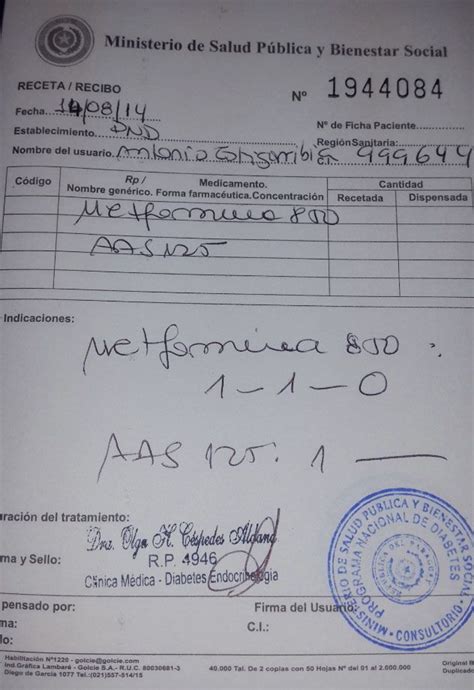 Ministerio de Salud Pública y Bienestar Social
RECETA / RECIBO
Nº 1944084
Fecha 14/08/14
Nº de Ficha Paciente
Establecimiento PND
Región Sanitaria:
Nombre del usuario Antonio 999644
Código
Rp / Medicamento.
Nombre genérico. Forma farmacéutica. Concentración
Cantidad
Recetada
Dispensada
Metformina 850
AAS 125
Indicaciones:
Metformina 850 :
1-1-0
AAS 125: 1 —
uración del tratamiento:
Dra. Olga H. Céspedes
R.P. 4946
ma y Sello:
Clínica Médica - Diabetes Endocrinología
MINISTERIO DE SALUD PUBLICA Y BIENESTAR SOCIAL
PROGRAMA NACIONAL DE DIABETES
CONSULTORIO
pensado por:
Firma del Usuario:
ma:
C.I.:
lo:
Habilitación Nº1220 - golcie@golcie.com
Ind.Gráfica Lambaré - Golcie S.A.- R.U.C. 80030681-3
Diego de García 1077 Tel.:(021)557-514/15
40.000 Tal. De 2 copias con 50 Hojas Nº del 01 al 2.000.000
Original
Duplicado